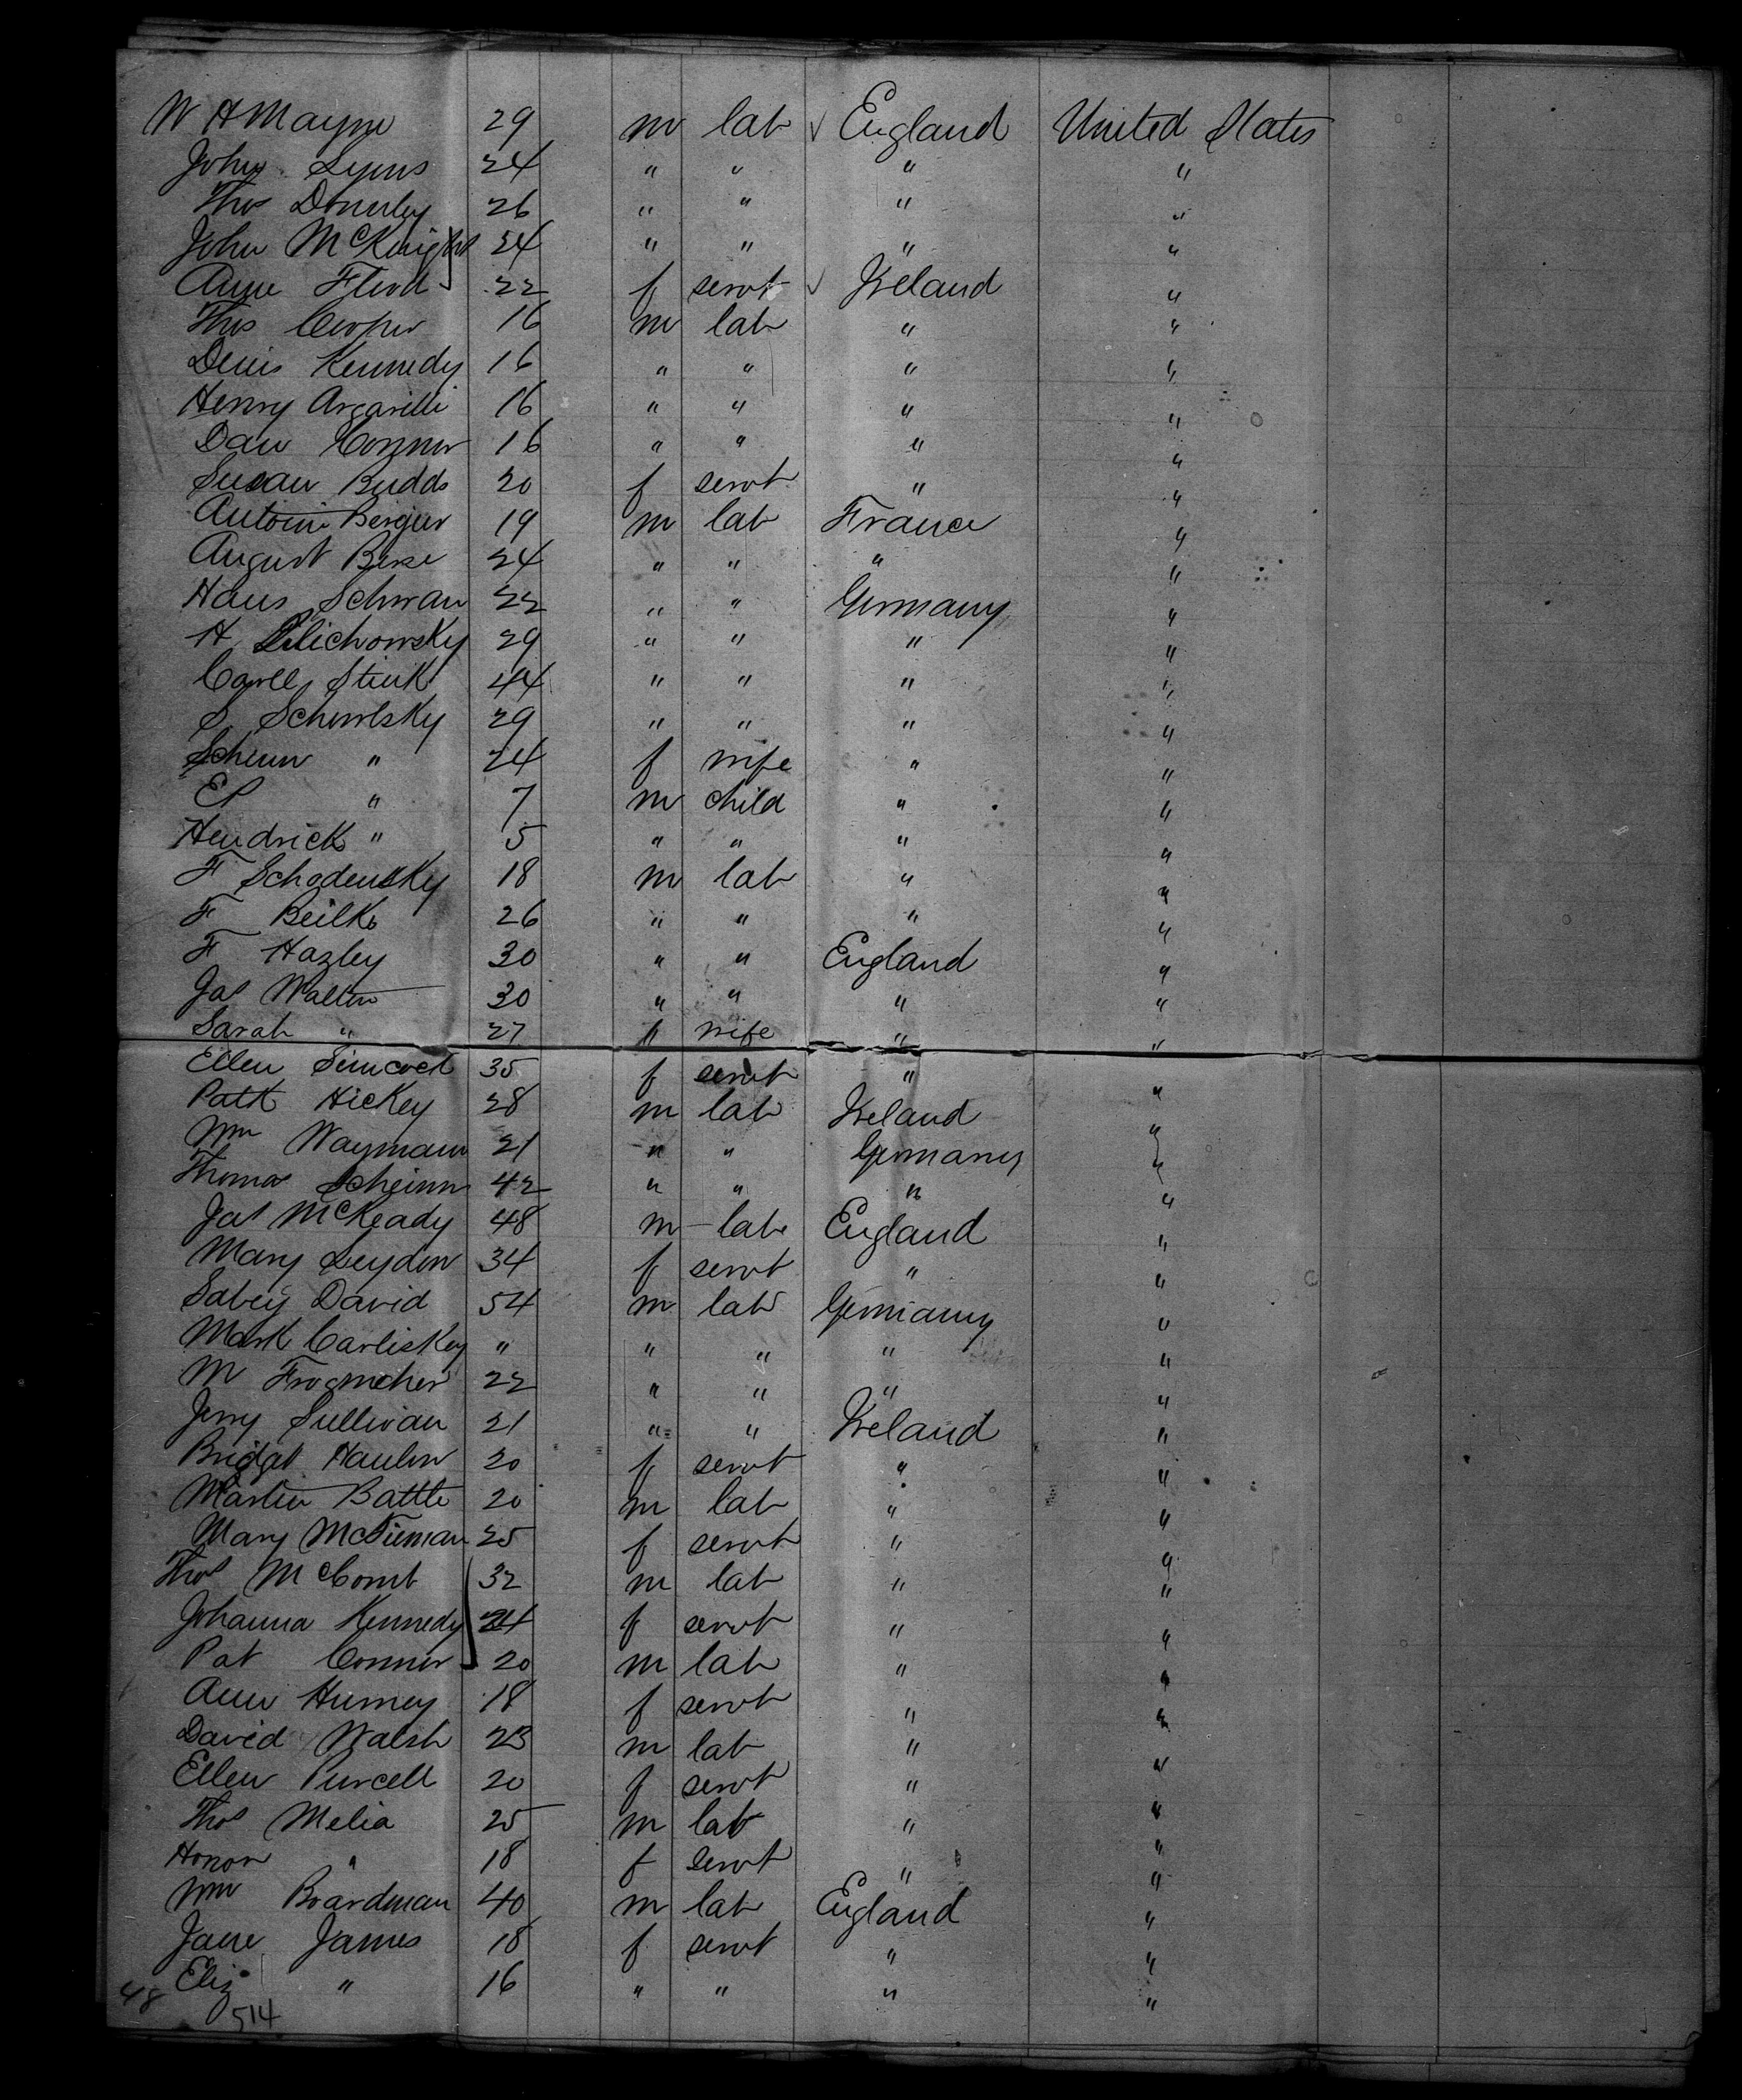 W H Mayne 29 m lab √ England United States
John Lyons 24 " " " "
Thos Donerley 26 " " " "
John McKnight 24 " " " "
Anne Flood 22 f servt √ Ireland "
Thos Cooper 16 m lab " "
Denis Kennedy 16 " " " "
Henry 16 " " " "
Dan Connor 16 " " " "
Susan Budds 20 f servt " "
Antoine Berger 19 m lab France "
August 24 " " " "
Hans Schwan 22 " " Germany "
H 29 " " " "
Carell Stink 44 " " " "
S Schewlsky 29 " " " "
" 24 f wife " "
" 7 m child " "
Hendrick " 5 " " " "
F Schodensky 18 m lab " "
F Beilke 26 " " " "
F Hazley 30 " " England "
Jas Walton 30 " " " "
Sarah " 27 f wife " "
Ellen Simcock 35 f servt " "
Patk Hickey 28 m lab Ireland "
Wm Waymann 21 " " Germany "
Thomas 42 " " " "
Jas McKeady 48 m lab England "
Mary Leydon 34 f servt " "
David 54 m lab Germany "
Mark Carliskey " " " " "
M 22 " " " "
Jerry Sullivan 21 " " Ireland "
Bridget Hanlon 20 f servt " "
Martin Battle 20 m lab " "
Mary McTiernan 25 f servt " "
Thos McComb 32 m lab " "
Johanna Kennedy 24 f servt " "
Pat Connor 20 m lab " "
Ann Hurney 18 f servt " "
David Walsh 23 m lab " "
Ellen Purcell 20 f servt " "
Thos Melia 25 m lab " "
Honor " 18 f servt " "
Wm Boardman 40 m lab England "
Jane James 18 f servt " "
Eliz " 16 " " " "
48
514